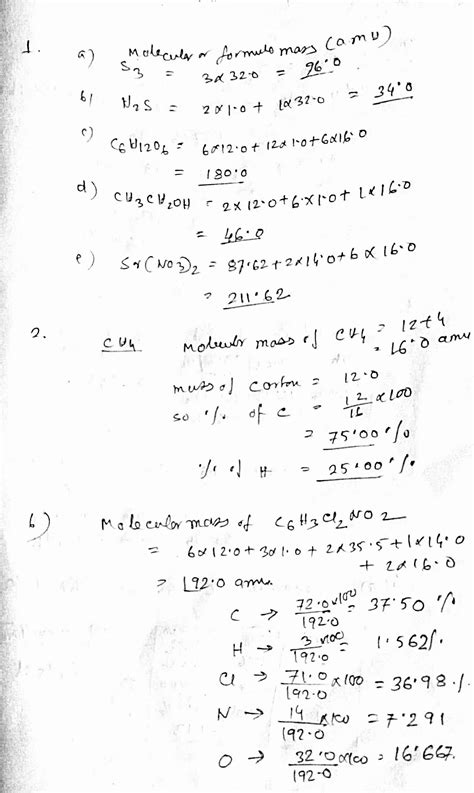 1. a) Molecular or formula mass (amu)
S3 = 3x32.0 = 96.0
b) H2S = 2x1.0 + 1x32.0 = 34.0
c) C6H12O6 = 6x12.0+12x1.0+6x16.0
= 180.0
d) CH3CH2OH = 2x12.0+6x1.0+1x16.0
= 46.0
e) Sr(NO3)2 = 87.62+2x14.0+6x16.0
= 211.62
2. CH4 Molecular mass of CH4 = 12+4
= 16.0 amu
mass of carbon = 12.0
so % of C = 12/16 x100
= 75.00%
% of H = 25.00%
b) Molecular mass of C6H3Cl2NO2
= 6x12.0+3x1.0+2x35.5+1x14.0
+ 2x16.0
= 192.0 amu
C → 72.0x100/192.0 = 37.50 %
H → 3x100/192.0 = 1.562%
Cl → 71.0/192.0 x100 = 36.98%
N → 14/192.0 x100 = 7.291
O → 32.0/192.0 x100 = 16.667